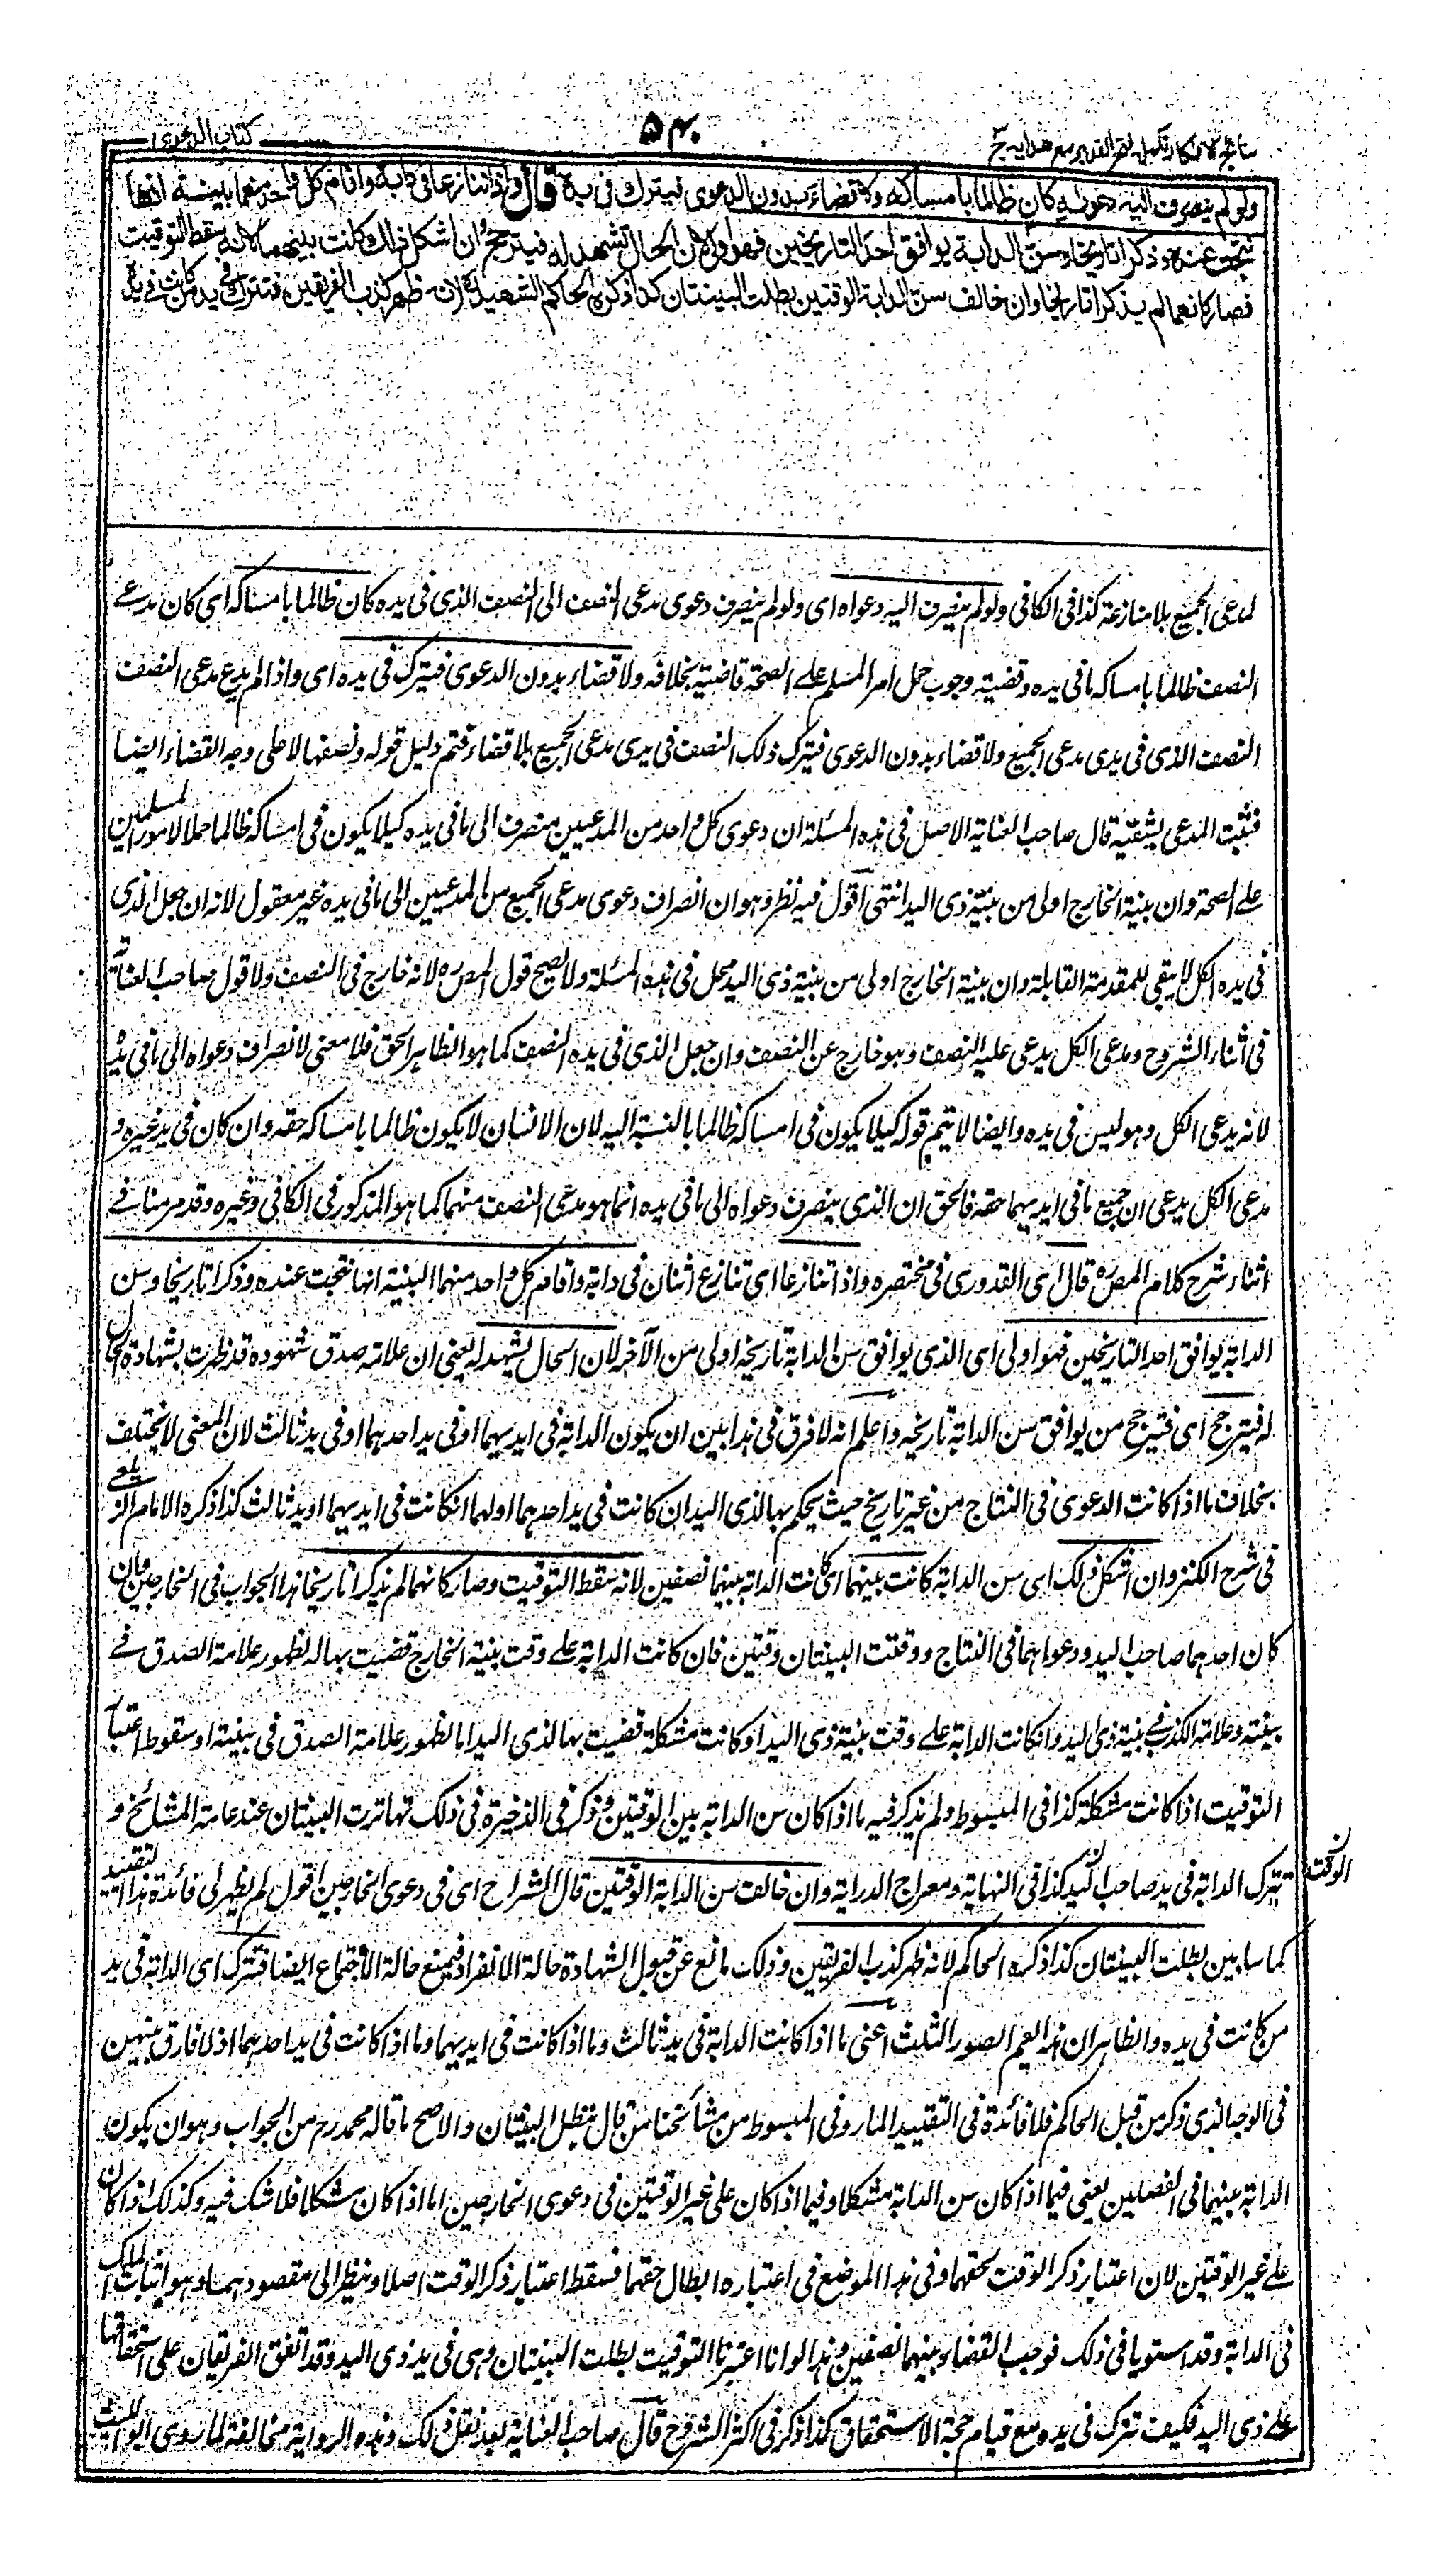 نتائج الافکار تکملہ فتح القدیر مع ھدایہ ج
۵۴۰
کتاب الدعوی
ولو لم ينصرف اليه دعواه كان ظالما بامساكه ولا قضاء بدون الدعوى فيترك فى يده قال واذا تنازعا فى دابة واقام كل واحد منهما بينة انها
نتجت عنده وذكرا تاريخا وسن الدابة يوافق احد التاريخين فهو اولى لان الحال يشهد له فيترجح وان اشكل ذلك كانت بينهما لانه سقط التوقيت
فصار كانهما لم يذكرا تاريخا وان خالف سن الدابة الوقتين بطلت البينتان كذا ذكره الحاكم الشهيد لانه ظهر كذب الفريقين فتترك فى يد من كانت فى يده
لمدعى الجميع بلا منازعة كذا فى الكافى ولو لم ينصرف اليه دعواه اى ولو لم ينصرف دعوى مدعى النصف الى النصف الذى فى يده كان ظالما بامساكه اى كان مدعى
النصف ظالما بامساكه ما فى يده وقضية وجوب حمل امر المسلم على الصحة قاضية بخلافه ولا قضاء بدون الدعوى فيترك فى يده اى واذا لم يدع مدعى النصف
النصف الذى فى يدى مدعى الجميع ولا قضاء بدون الدعوى فيترك ذلك النصف فى يدى مدعى الجميع بلا قضاء فتم دليل قوله ونصفها لا على وجه القضاء ايضا
فثبت المدعى بشقيه قال صاحب العناية الاصل فى هذه المسئلة ان دعوى كل واحد من المدعيين منصرف الى ما فى يده كيلا يكون فى امساكه ظالما حملا لامور المسلمين
على الصحة وان بينة الخارج اولى من بينة ذى اليد انتهى اقول فيه نظر وهو ان انصراف دعوى مدعى الجميع من المدعيين الى ما فى يده غير معقول لانه ان جعل الذى
فى يده الكل لا يبقى للمقدمة القابلة وان بينة الخارج اولى من بينة ذى اليد محل فى هذه المسئلة ولا يصح قول المصره لانه خارج فى النصف ولا قول صاحب العناية
فى اثناء الشروح ومدعى الكل يدعى عليه النصف وهو خارج عن النصف وان جعل الذى فى يده النصف كما هو الظاهر الحق فلا معنى لانصراف دعواه الى ما فى يده
لانه يدعى الكل وهو ليس فى يده وايضا لا يتم قوله كيلا يكون فى امساكه ظالما بالنسبة اليه لان الانسان لا يكون ظالما بامساكه حقه وان كان فى يد غيره و
مدعى الكل يدعى ان جميع ما فى ايديهما حقه فالحق ان الذى ينصرف دعواه الى ما فى يده انما هو مدعى النصف منهما كما هو المذكور فى الكافى وغيره وقد مر منا فى
اثناء شرح كلام المصره قال اى القدورى فى مختصره واذا تنازعا اى تنازع اثنان فى دابة واقام كل واحد منهما البينة انها نتجت عنده وذكرا تاريخا وسن
الدابة يوافق احد التاريخين فهو اولى اى الذى يوافق سن الدابة تاريخه اولى من الآخر لان الحال يشهد له يعنى ان علامة صدق شهوده قد ظهرت بشهادة الحال
له فيترجح اى فيترجح من يوافق سن الدابة تاريخه واعلم انه لا فرق فى هذا بين ان يكون الدابة فى ايديهما او فى يد احدهما او فى يد ثالث لان المعنى لا يختلف
بخلاف ما اذا كانت الدعوى فى النتاج من غير تاريخ حيث يحكم بها لذى اليد ان كانت فى يد احدهما او لهما ان كانت فى ايديهما او يد ثالث كذا ذكره الامام الزيلعى
فى شرح الكنز وان اشكل ذلك اى سن الدابة كانت بينهما اى كانت الدابة بينهما نصفين لانه سقط التوقيت وصار كانهما لم يذكرا تاريخا هذا الجواب فى الخارجين وان
كان احدهما صاحب اليد ودعواهما فى النتاج ووقتت البينتان وقتين فان كانت الدابة على وقت بينة الخارج قضيت بها له لظهور علامة الصدق فى
بينته وعلامة الكذب فى بينة ذى اليد وان كانت الدابة على وقت بينة ذى اليد او كانت مشكلة قضيت بها لذى اليد اما لظهور علامة الصدق فى بينته او سقوط اعتبار
التوقيت اذا كانت مشكلة كذا فى المبسوط ولم يذكر فيه ما اذا كان سن الدابة بين الوقتين وذكر فى الذخيرة فى ذلك تهاترت البينتان عند عامة المشائخ و
تترك الدابة فى يد صاحب اليد كذا فى النهاية ومعراج الدراية وان خالف سن الدابة الوقتين قال الشراح اى فى دعوى الخارجين اقول لم يظهر لى فائدة هذا التقييد
كما سابين بطلت البينتان كذا ذكره الحاكم لانه ظهر كذب الفريقين وذلك مانع عن قبول الشهادة حالة الانفراد فيمنع حالة الاجتماع ايضا فتترك اى الدابة فى يد
من كانت فى يده والظاهر ان هذا يعم الصور الثلث اعنى ما اذا كانت الدابة فى يد ثالث وما اذا كانت فى ايديهما وما اذا كانت فى يد احدهما اذ لا فارق بينهن
فى الوجه الذى ذكر من قبل الحاكم فلا فائدة فى التقييد المار وفى المبسوط من مشائخنا من قال تبطل البينتان والاصح ما قاله محمد رح من الجواب وهو ان يكون
الدابة بينهما فى الفصلين يعنى فيما اذا كان سن الدابة مشكلا وفيما اذا كان على غير الوقتين فى دعوى الخارجين اما اذا كان مشكلا فلا شك فيه وكذلك اذا كان
على غير الوقتين لان اعتبار ذكر الوقت لحقهما وفى هذا الموضع فى اعتباره ابطال حقهما فسقط اعتبار ذكر الوقت اصلا وينظر الى مقصودهما وهو اثبات الملك
فى الدابة وقد استويا فى ذلك فوجب القضاء بينهما نصفين وهذا لو انا اعتبرنا التوقيت لبطلت البينتان وهى فى يد ذى اليد وقد اتفق الفريقان على استحقاقها
على ذى اليد فكيف تترك فى يده مع قيام حجة الاستحقاق كذا ذكر فى اكثر الشروح قال صاحب العناية بعد نقل ذلك وهذه الرواية مخالفة لما روى ابو الليث